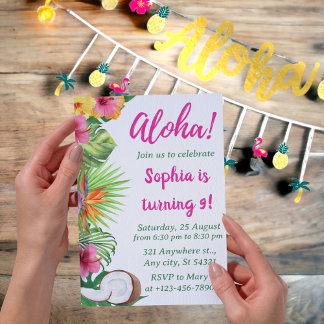 Aloha
Aloha!
Join us to celebrate
Sophia is
turning 9!
Saturday, 25 August
from 6:30 pm to 8:30 pm
321 Anywhere st..,
Any city, St 54321
RSVP to Mary
at +123-456-7890